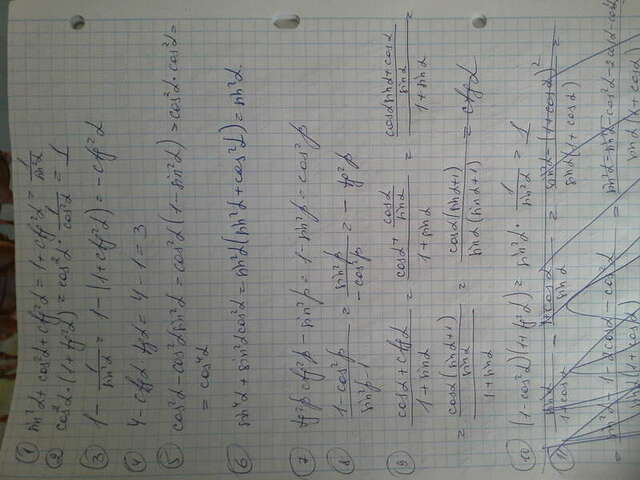 ① sin²α + cos²α + ctg²α = 1 + ctg²α = 1/sin²α
② cos²α · (1 + tg²α) = cos²α · 1/cos²α = 1
③ 1 - 1/sin²α = 1 - (1 + ctg²α) = - ctg²α
④ 4 - ctgα tgα = 4 - 1 = 3
⑤ cos²α - cos²α sin²α = cos²α (1 - sin²α) = cos²α · cos²α =
= cos⁴α
⑥ sin⁴α + sin²α cos²α = sin²α (sin²α + cos²α) = sin²α.
⑦ tg²β ctg²β - sin²β = 1 - sin²β = cos²β
⑧ (1 - cos²β)/(sin²β - 1) = sin²β/(-cos²β) = - tg²β
⑨ (cosα + ctgα)/(1 + sinα) = (cosα + cosα/sinα)/(1 + sinα) = ((cosα sinα + cosα)/sinα)/(1 + sinα) =
= (cosα (sinα + 1)/sinα)/(1 + sinα) = cosα (sinα + 1)/(sinα (sinα + 1)) = ctgα
⑩ (1 - cos²α)(1 + tg²α) = sin²α · 1/sin²α = 1
⑪ sinα/(1 + cosα) - (1 + cosα)/sinα = (sin²α - (1 + cosα)²)/(sinα (1 + cosα)) =